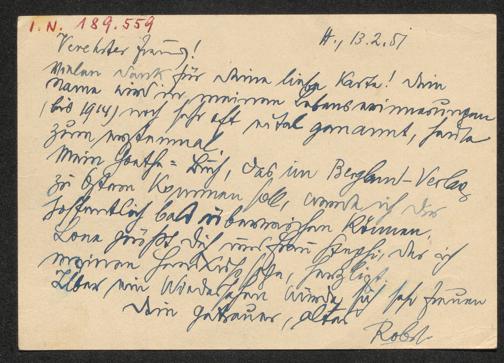 I. N. 189.559
A., 13.2.51
Verehrter Freund!
Vielen Dank für Deine liebe Karte! Dein
Name wird in meinen Lebenserinnerungen
(bis 1914) noch sehr oft genannt, heute
zum erstenmal.
Mein Goethe-Buch, das im Bergland-Verlag
zu Ostern kommen soll, werde ich Dir
hoffentlich bald überreichen können.
Lona grüßt Dich und Frau der ich
meinen Handkuß herzlichst
Über ein Wiedersehen würde sich sehr freuen
Dein getreuer, alter